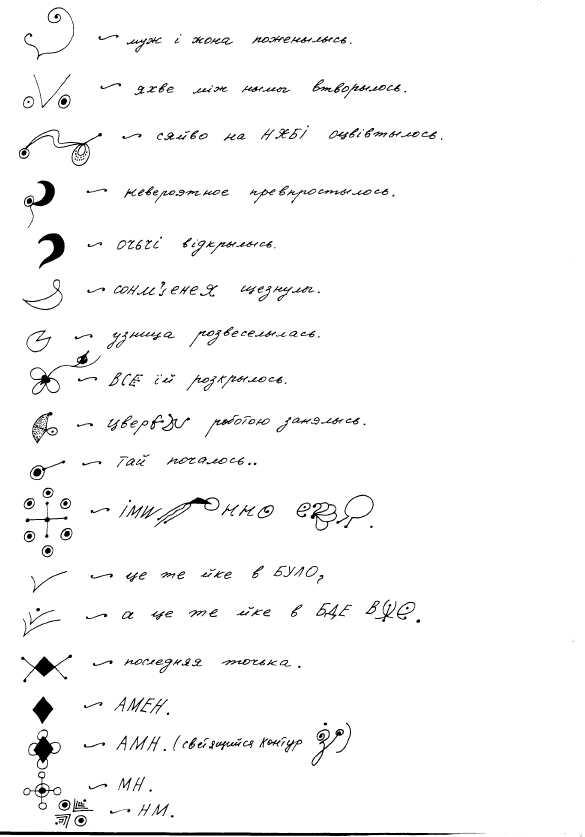 муж і жона поженылысь.
яхве між нымы втворылось.
сяйво на НЖБІ оцвівтылось.
невероятное превпростылось.
очьчі відкрылысь.
сонм'енея щезнулы.
узница розвеселылась.
ВСЕ їй розкрылось.
роботою занялысь.
тай почалось..
ІМИ ННО
це те йке в БУЛО,
а це те йке в БДЕ
последняя точька.
АМЕН.
АМН. (светящийся контур )
МН.
НМ.